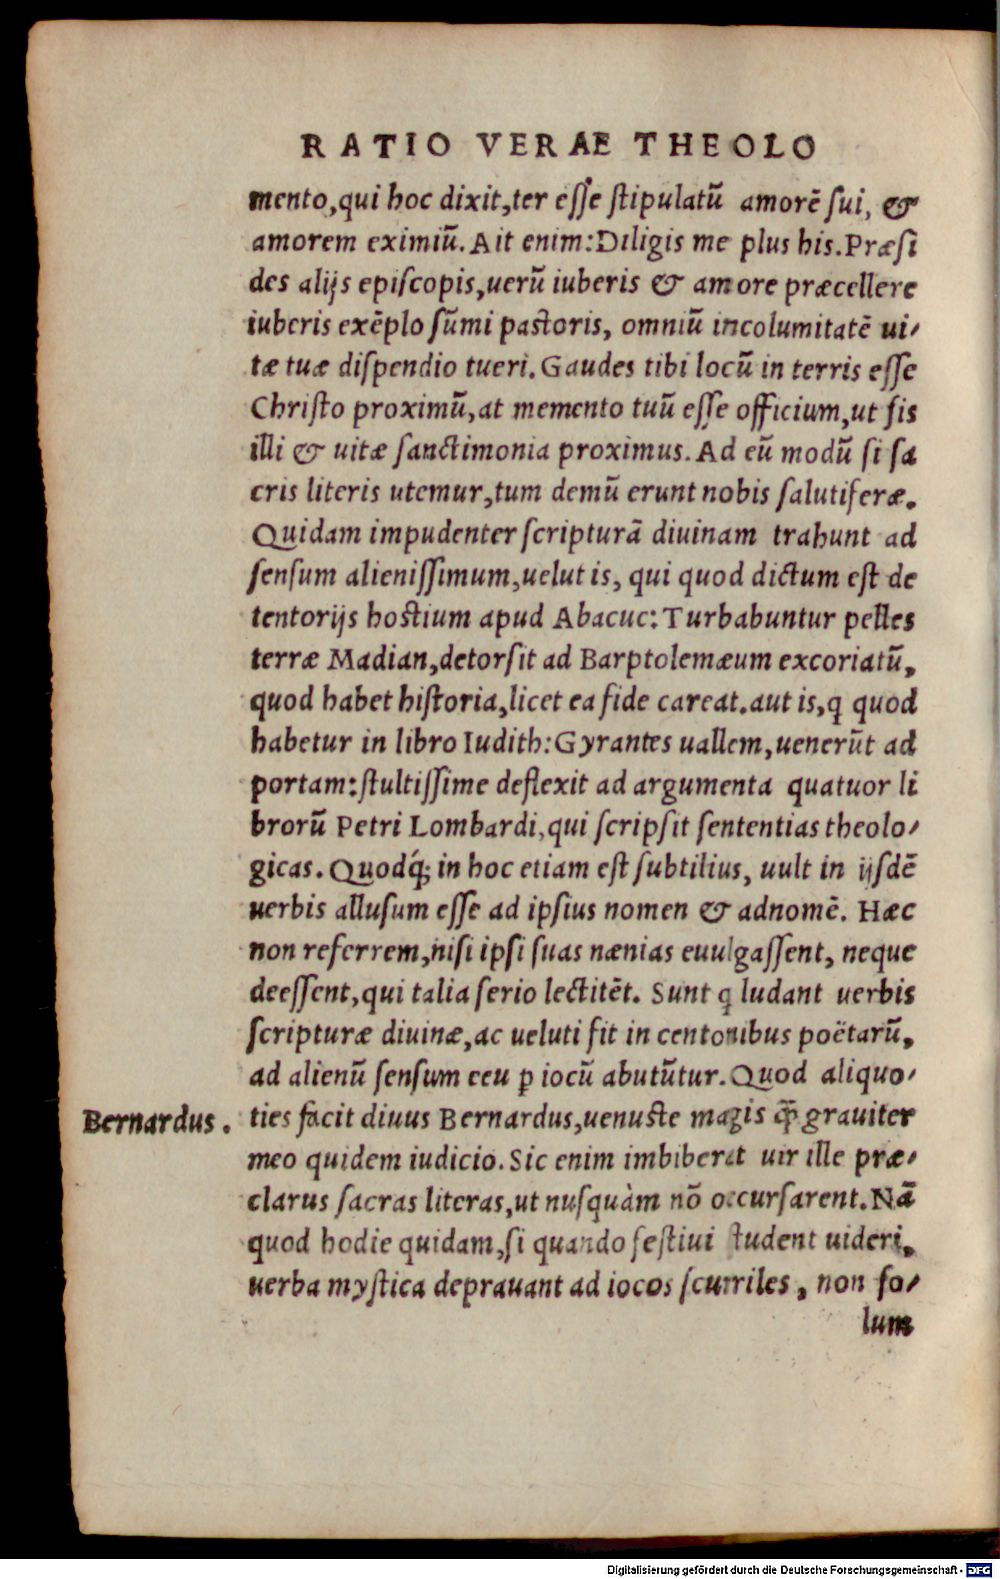 RATIO VERAE THEOLO
mento,qui hoc dixit,ter eſſe ſtipulatū amorē ſui, &
amorem eximiū. Ait enim:Diligis me plus his.Præſi
des alijs epiſcopis,uerū iuberis & amore præcellere
iuberis exēplo ſūmi paſtoris, omniū incolumitatē ui⸗
tæ tuæ diſpendio tueri. Gaudes tibi locū in terris eſſe
Chriſto proximū,at memento tuū eſſe officium,ut ſis
illi & uitæ ſanctimonia proximus. Ad eū modū ſi ſa
cris literis utemur,tum demū erunt nobis ſalutiferæ.
Quidam impudenter ſcripturā diuinam trahunt ad
ſenſum alieniſſimum,uelut is, qui quod dictum eſt de
tentorijs hoſtium apud Abacuc: Turbabuntur pelles
terræ Madian,detorſit ad Barptolemæum excoriatū,
quod habet hiſtoria,licet ea fide careat.aut is,q̃ quod
habetur in libro Iudith:Gyrantes uallem,uenerūt ad
portam:ſtultiſſime deflexit ad argumenta quatuor li
brorū Petri Lombardi,qui ſcripſit ſententias theolo⸗
gicas. Quodq́; in hoc etiam eſt ſubtilius, uult in ijſdē
uerbis alluſum eſſe ad ipſius nomen & adnomē. Hæc
non referrem,niſi ipſi ſuas nænias euulgaſſent, neque
deeſſent,qui talia ſerio lectitēt. Sunt q̃ ludant uerbis
ſcripturæ diuinæ,ac ueluti fit in centonibus poëtarū,
ad alienū ſenſum ceu ꝑ iocū abutūtur. Quod aliquo⸗
Bernardus.
ties facit diuus Bernardus,uenuſte magis q̃ grauiter
meo quidem iudicio. Sic enim imbiberat uir ille præ⸗
clarus ſacras literas,ut nuſquàm nō occurſarent. Nā
quod hodie quidam,ſi quando feſtiui ſtudent uideri,
uerba myſtica deprauant ad iocos ſcurriles, non ſo⸗
lum
Digitalisierung gefördert durch die Deutsche Forschungsgemeinschaft - DFG